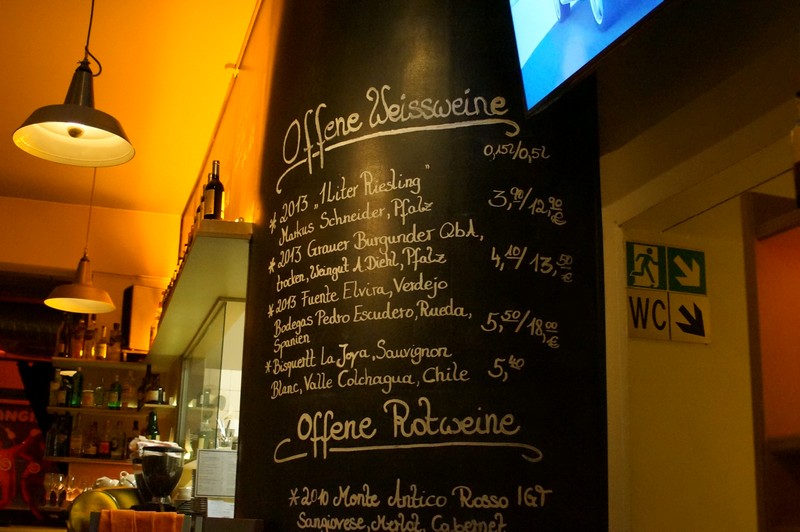 Offene Weissweine
0,15l/0,5l
* 2013 „1Liter Riesling"
Markus Schneider, Pfalz
3,90/12,90 €
* 2013 Grauer Burgunder QbA,
trocken, Weingut A. Diehl, Pfalz
4,10/13,50 €
* 2013 Fuente Elvira, Verdejo
Bodegas Pedro Escudero, Rueda,
Spanien
5,50/18,00 €
* Bisquertt La Joya, Sauvignon
Blanc, Valle Colchagua, Chile
5,40
Offene Rotweine
* 2010 Monte Antico Rosso IGT
Sangiovese, Merlot, Cabernet
WC